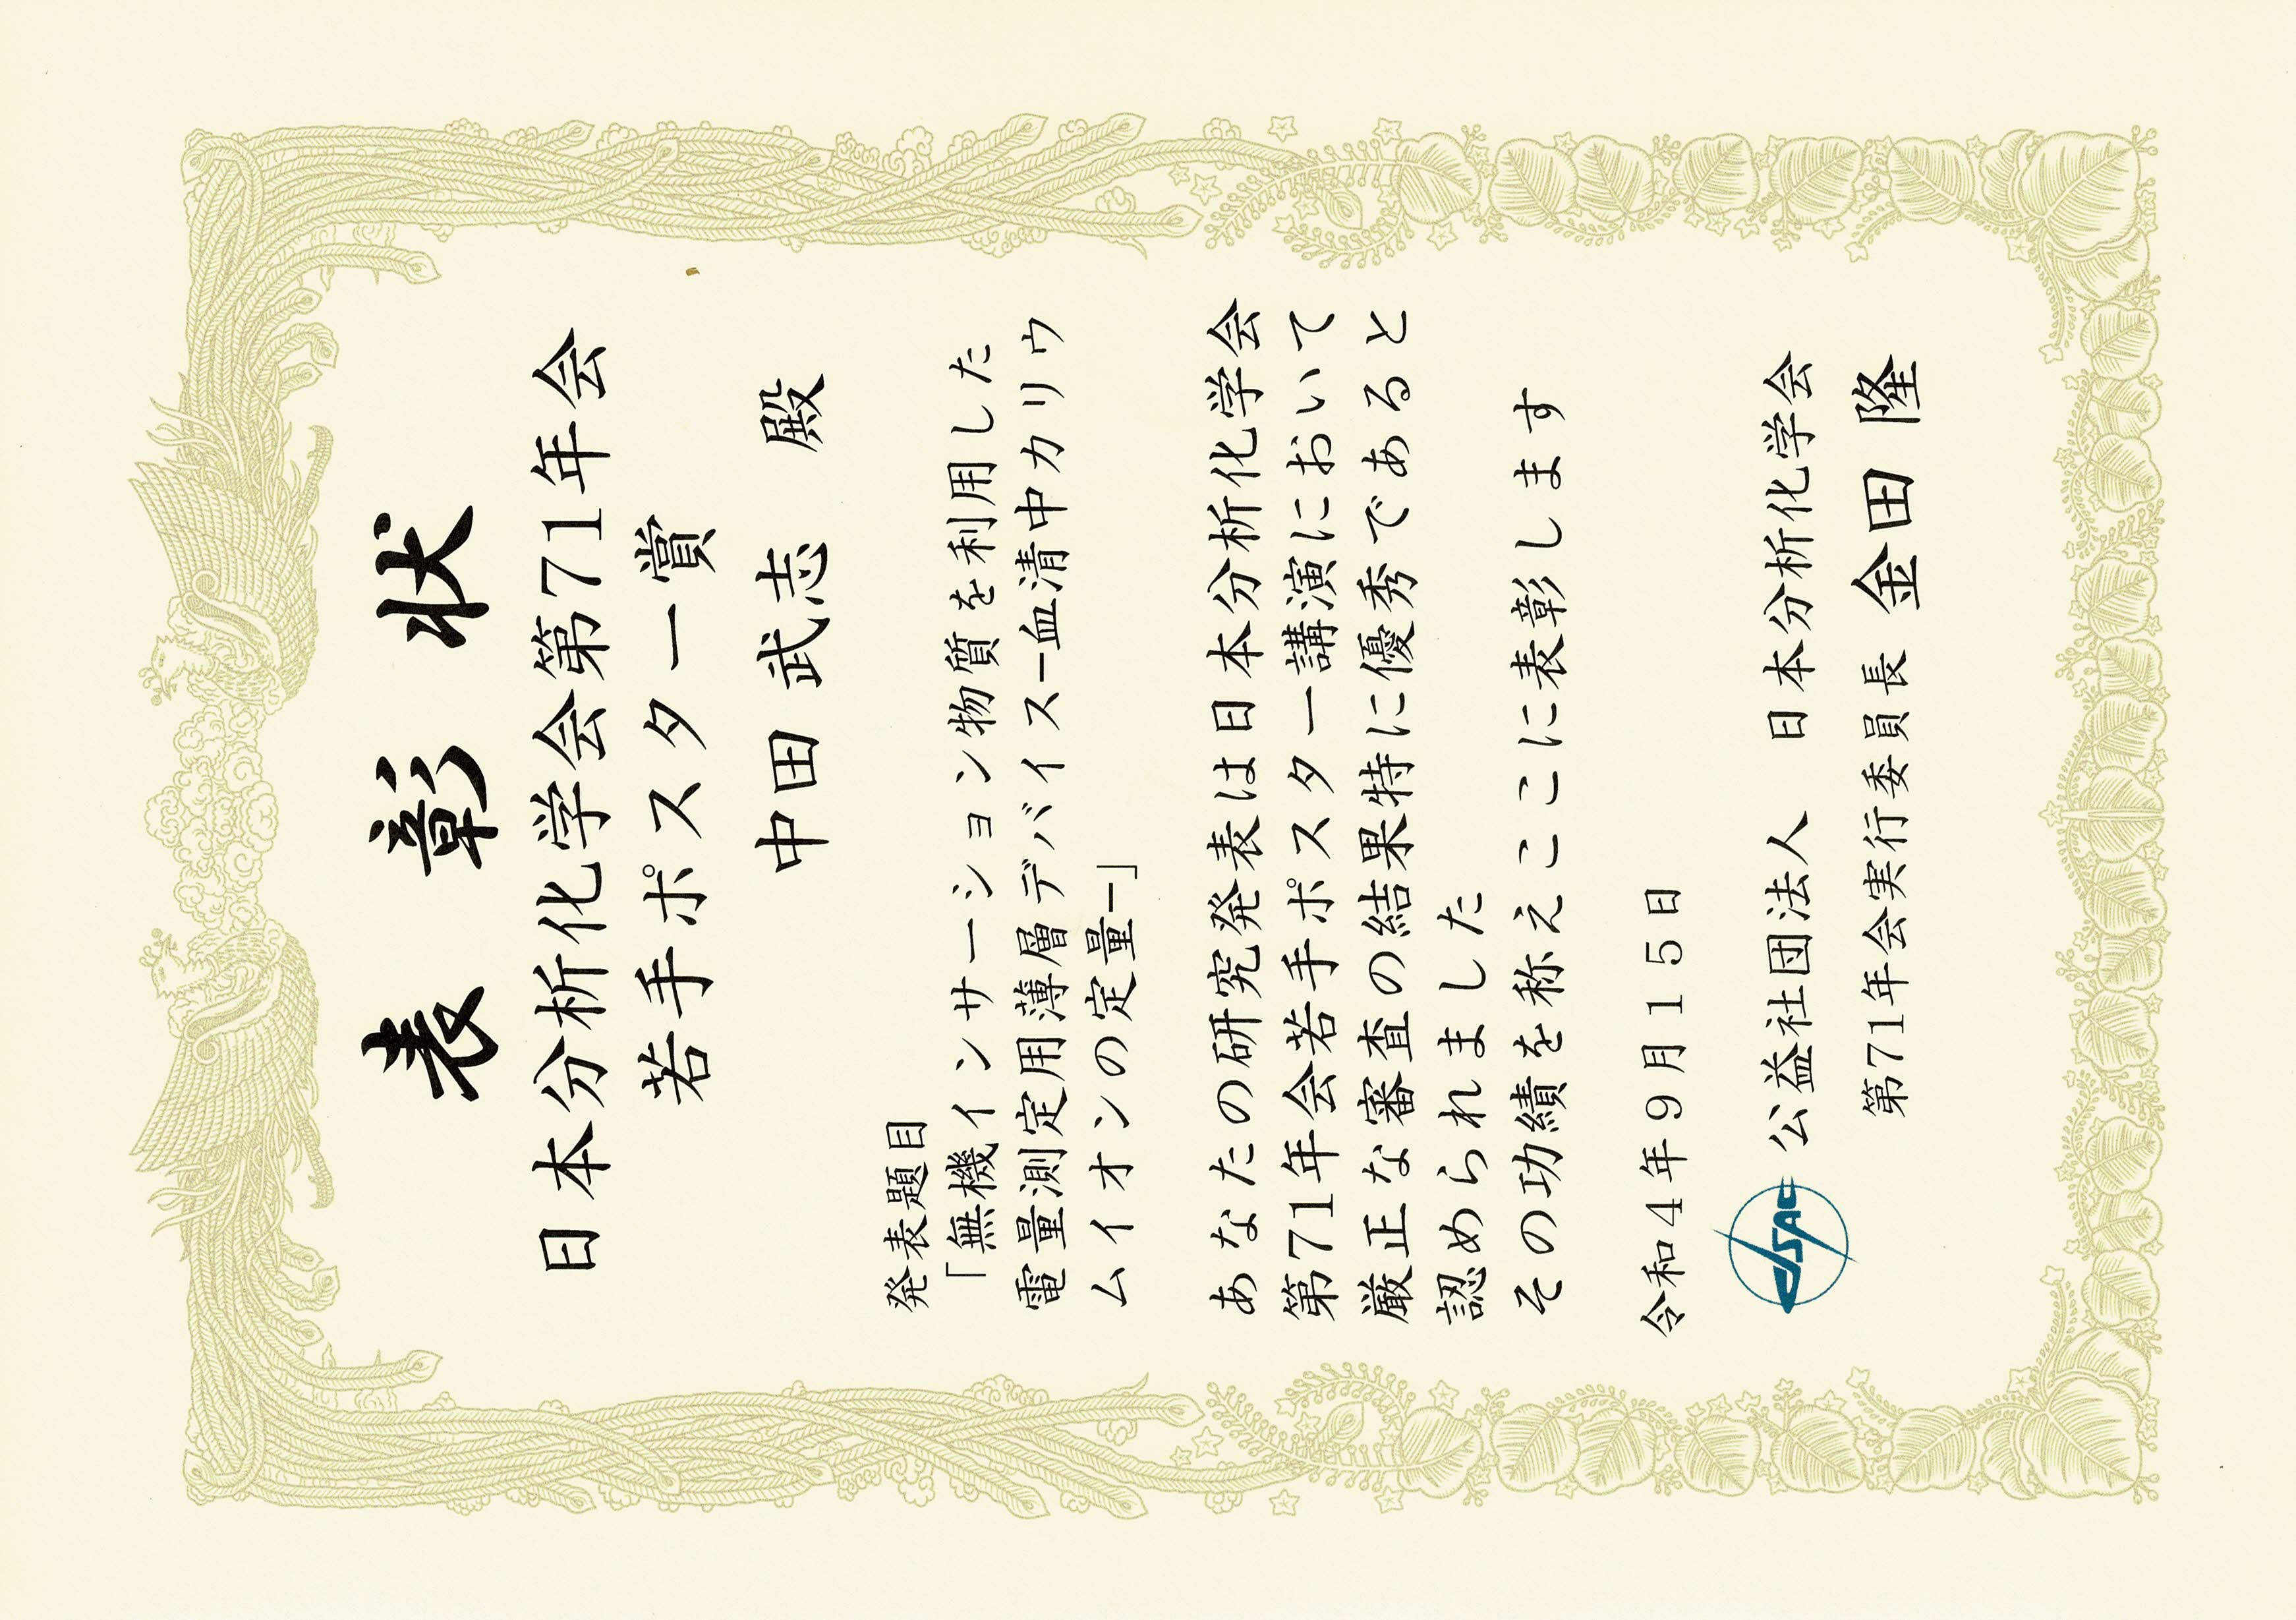 表彰状
日本分析化学会第71年会
若手ポスター賞
中田 武志 殿
発表題目
「無機インサーション物質を利用した
電量測定用薄層デバイス−血清中カリウ
ムイオンの定量−」
あなたの研究発表は日本分析化学会
第71年会若手ポスター講演において
厳正な審査の結果特に優秀であると
認められました
その功績を称えここに表彰します
令和4年9月15日
JSAC 公益社団法人 日本分析化学会
第71年会実行委員長 金田 隆